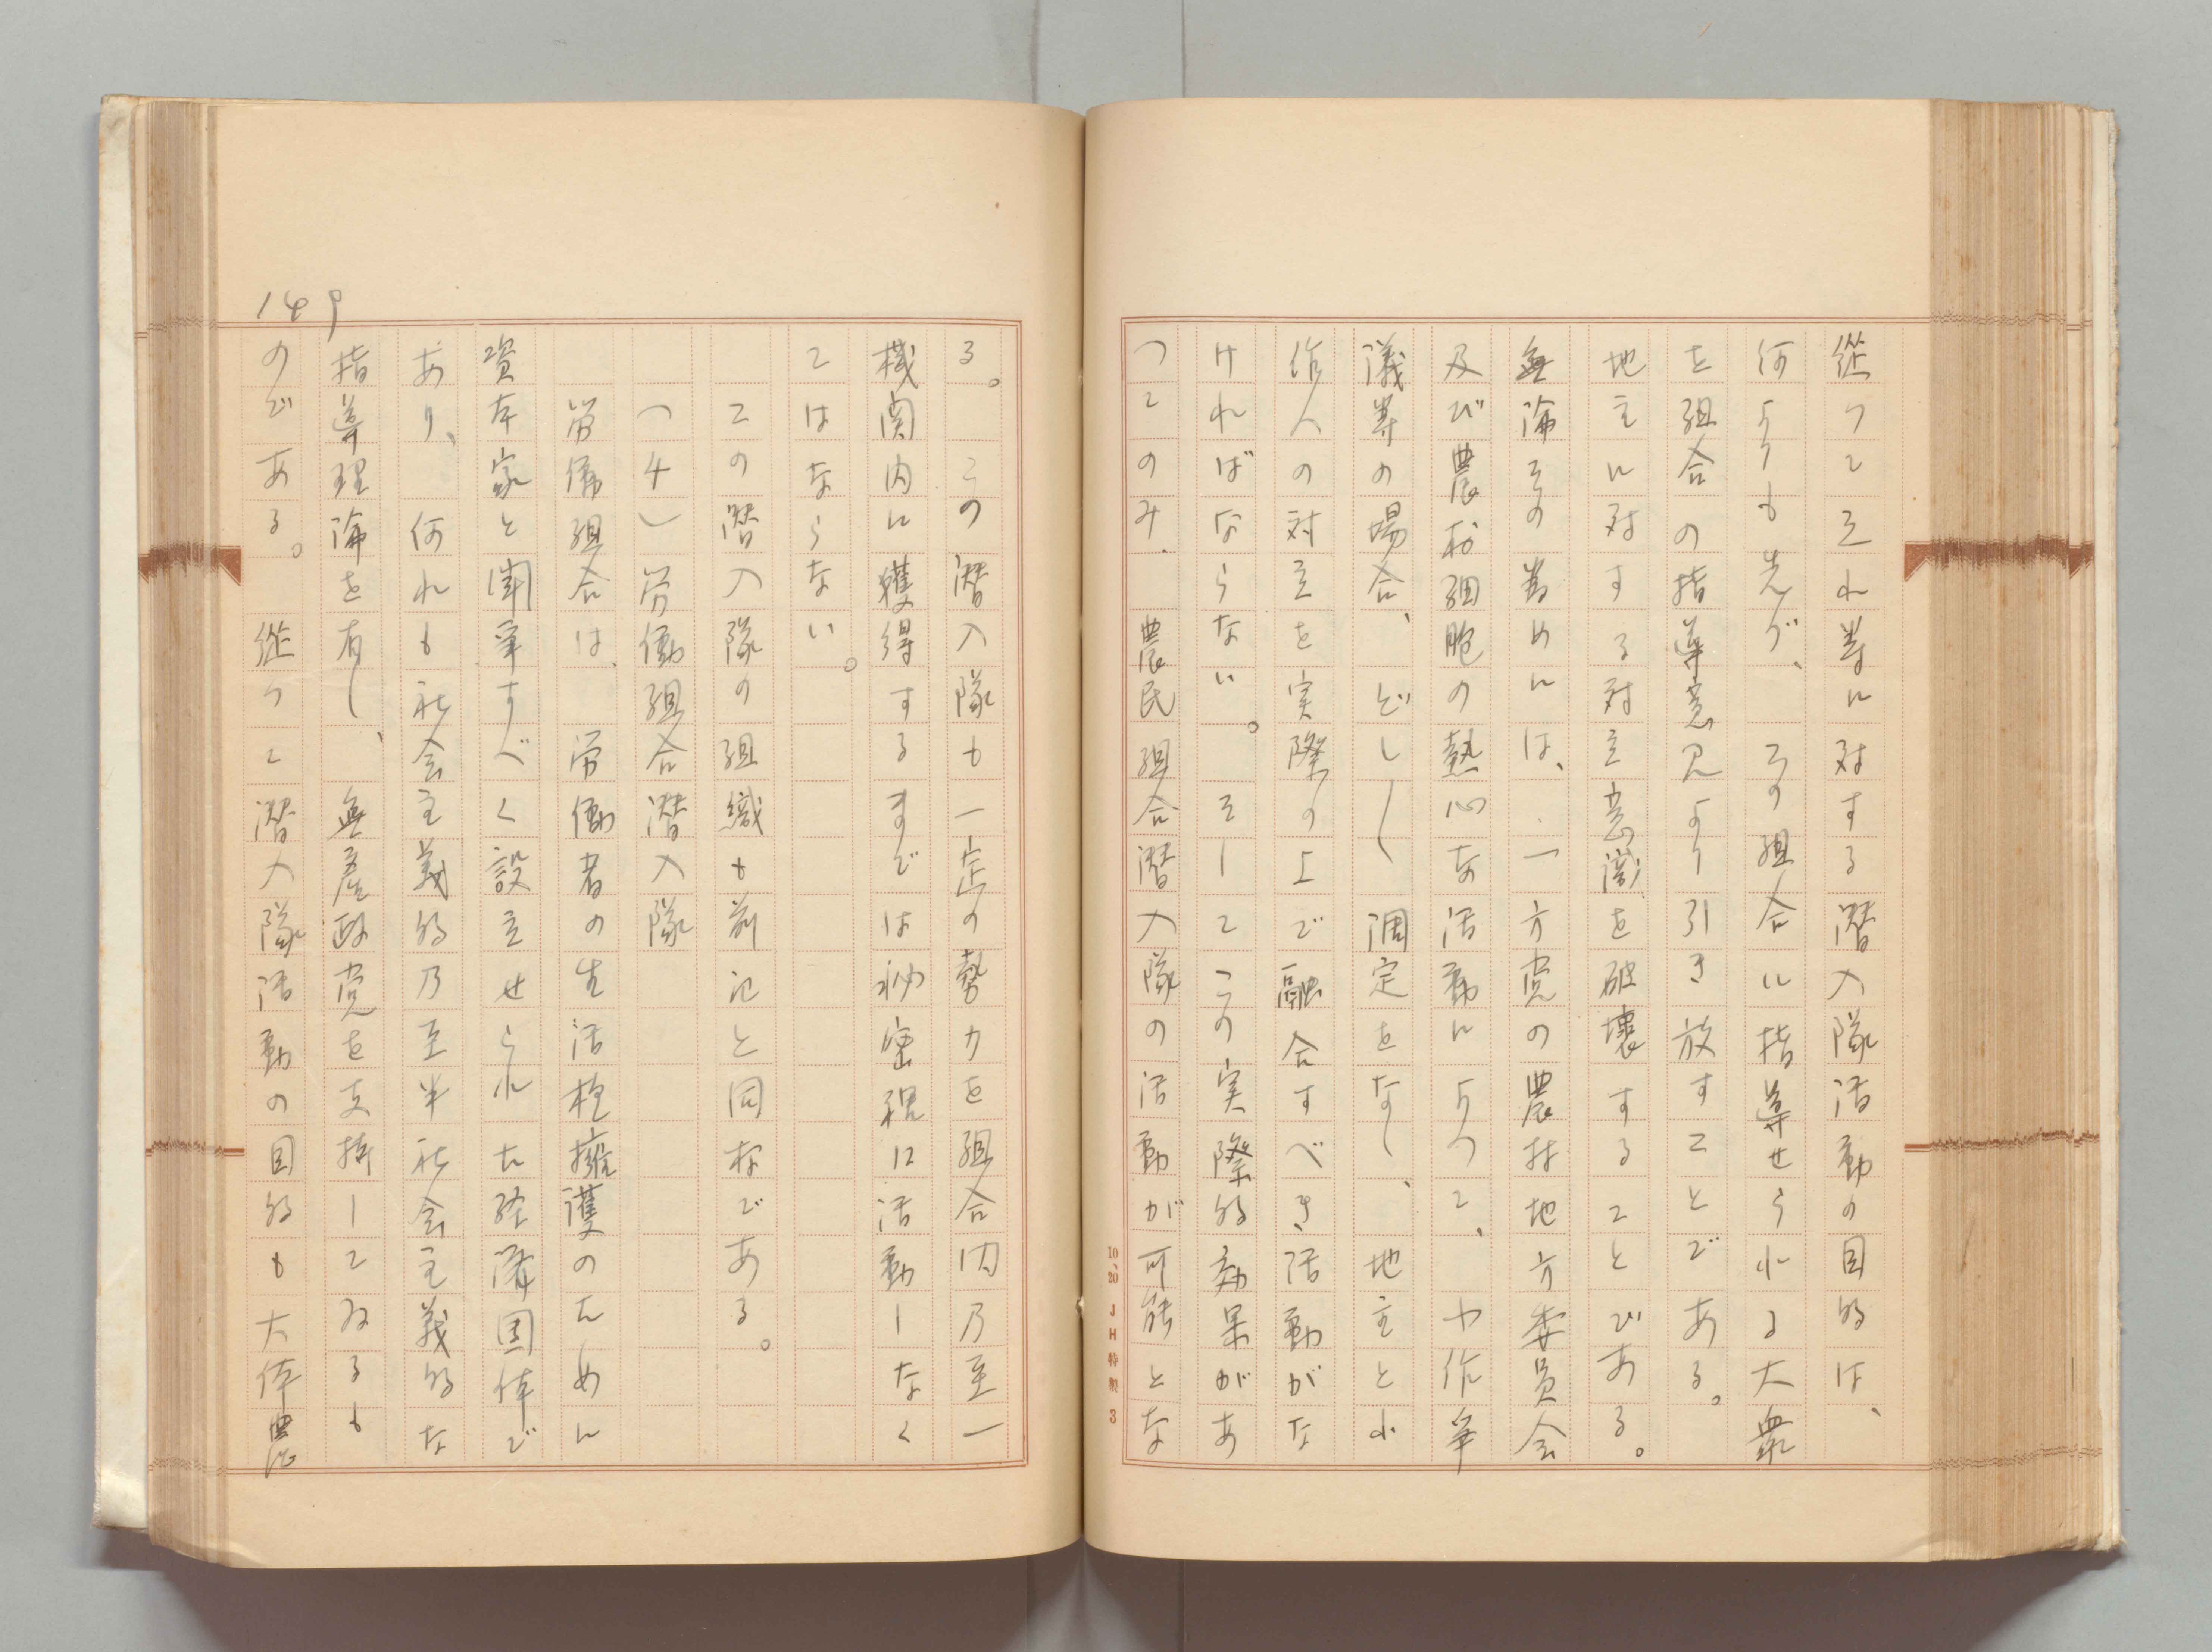 従つてそれ等に対する潜入隊活動の目的は、
何よりも先づ、その組合に指導せられる大衆
を組合の指導意見より引き放すことである。
地主に対する対立意識を破壊することである。
無論その為めには、一方党の農村地方委員会
及び農村細胞の熱心な活動によつて、小作争
議等の場合、どしどし調定をなし、地主と小
作人の対立を実際の上で融合すべき活動がな
ければならない。そしてこの実際的効果があ
つてのみ、農民組合潜入隊の活動が可能とな
10、20 JH特製 3
る。この潜入隊も一定の勢力を組合内乃至一
機関内に獲得するまでは秘密裡に活動しなく
てはならない。
この潜入隊の組織も前記と同様である。
（4）労働組合潜入隊
労働組合は、労働者の生活権擁護のために
資本家と闘争すべく設立せられた経済団体で
あり、何れも社会主義的乃至半社会主義的な
指導理論を有し、無産政党を支持してゐるも
のである。従つて潜入隊活動の目的も大体農
149